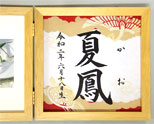 かお
夏鳳
令和二年六月十八日生